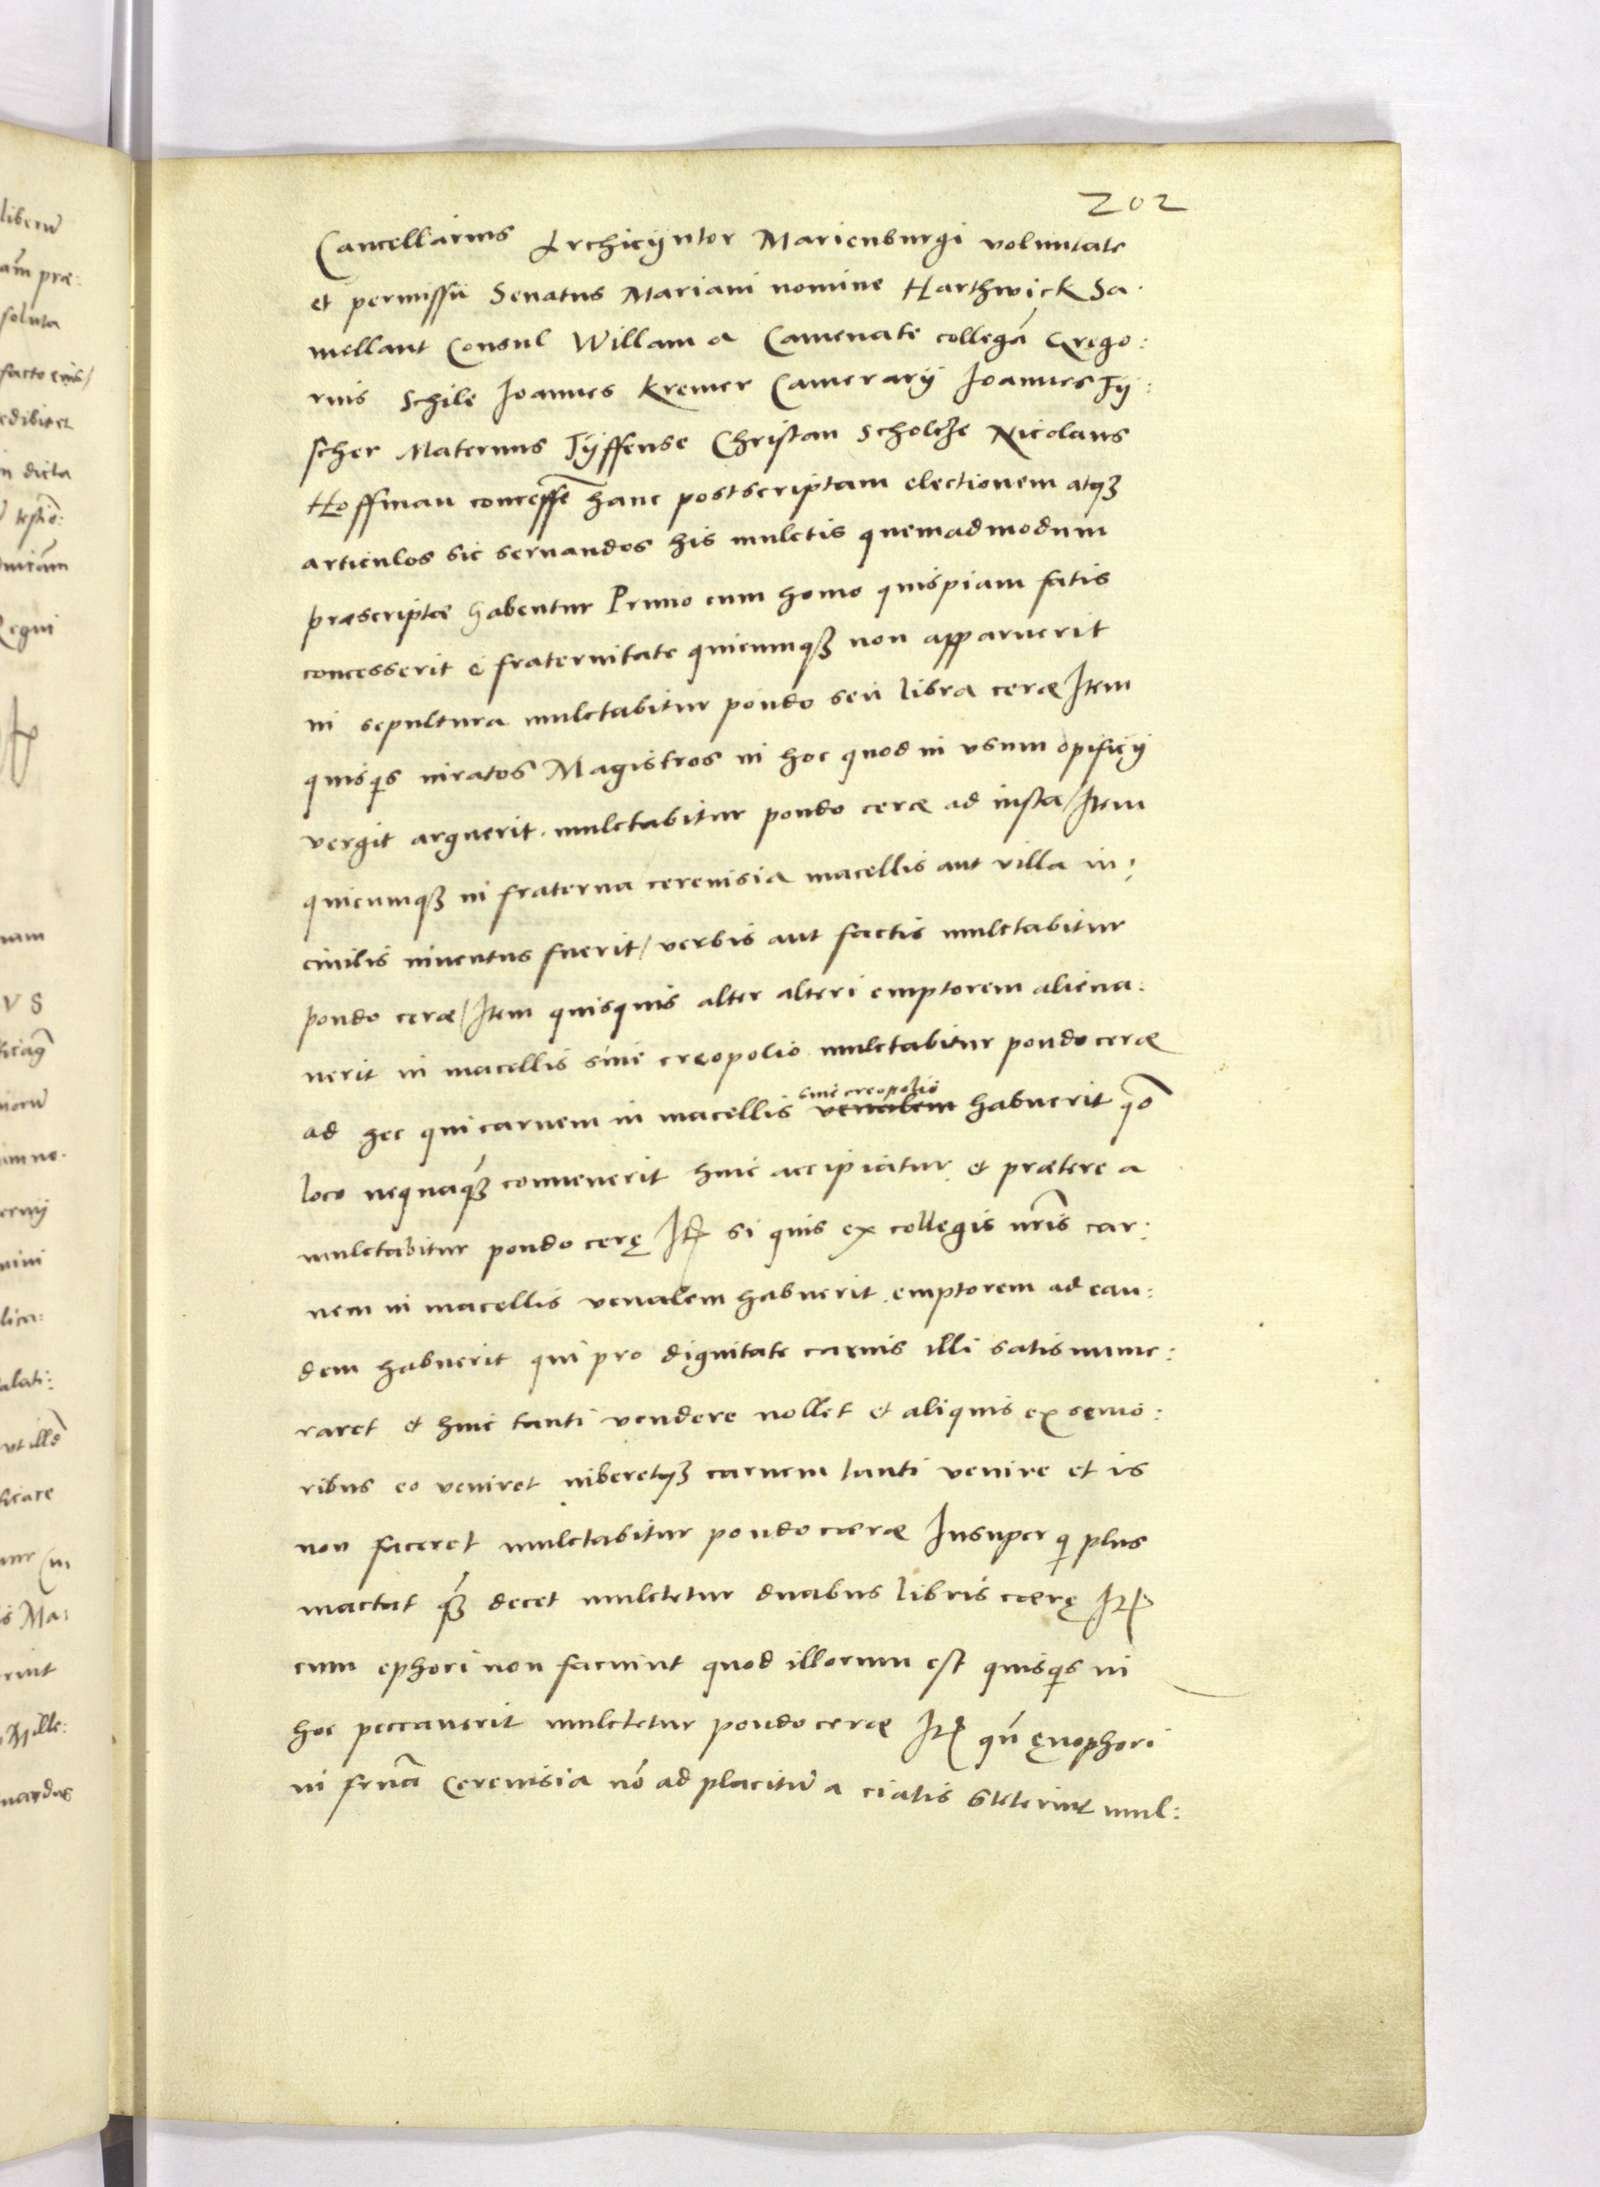 202
Cancellarius Archicyntor Marienburgi voluntate
et permissu Senatus Mariani nomine Harthwick Sa.
mellant Consul Willam a Camenate collegā Grego:
rius Schile Joannes Kremer Camerarij Joannes Fy:
scher Maternus Tyffense Christan Scholcze Nicolaus
Hoffman concesse hanc postscriptam electionem atqꝫ
articulos sic seruandos his mulctis quemadmodum
præscriptæ habentur Primo cum homo quispiam fatis
concesserit è fraternitate quicumqꝫ non apparuerit
in sepultura mulctabitur pondo seu libra ceræ Item
quisqs iuratos Magistros in hoc quod in vsum opificij
vergit arguerit. mulctabitur pondo ceræ ad iusta/ Item
quicumqꝫ in fraterna cereuisia macellis aut villa in:
ciuilis inuentus fuerit/ verbis aut factis mulctabitur
pondo ceræ/ Item quisquis alter alteri emptorem aliena:
uerit in macellis siue creopolio mulctabitur pondo ceræ
siue creopolio
ad hec qui carnem in macellis venalem habuerit qō
loco nequaqꝫ conuenerit huic accipiatur et præterea
mulctabitur pondo cerę Itꝫ si quis ex collegis nr̄is car:
nem in macellis venalem habuerit emptorem ad ean:
dem habuerit qui pro dignitate carnis illi satis nume:
raret et huic tanti vendere nollet et aliquis ex senio:
ribus eo veniret iuberetqꝫ carnem tanti venire et is
non faceret mulctabitur pondo cæræ Insuper q plus
mactat qꝫ decet mulctetur duabus libris cærę Itꝫ
cum ephori non faciunt quod illorum est quisqs in
hoc peccauerit mulctetur pondo ceræ Itꝫ qn̄ ęnophori
in frn̄a Cereuisia nō ad placitū a ciatis steterint mul: